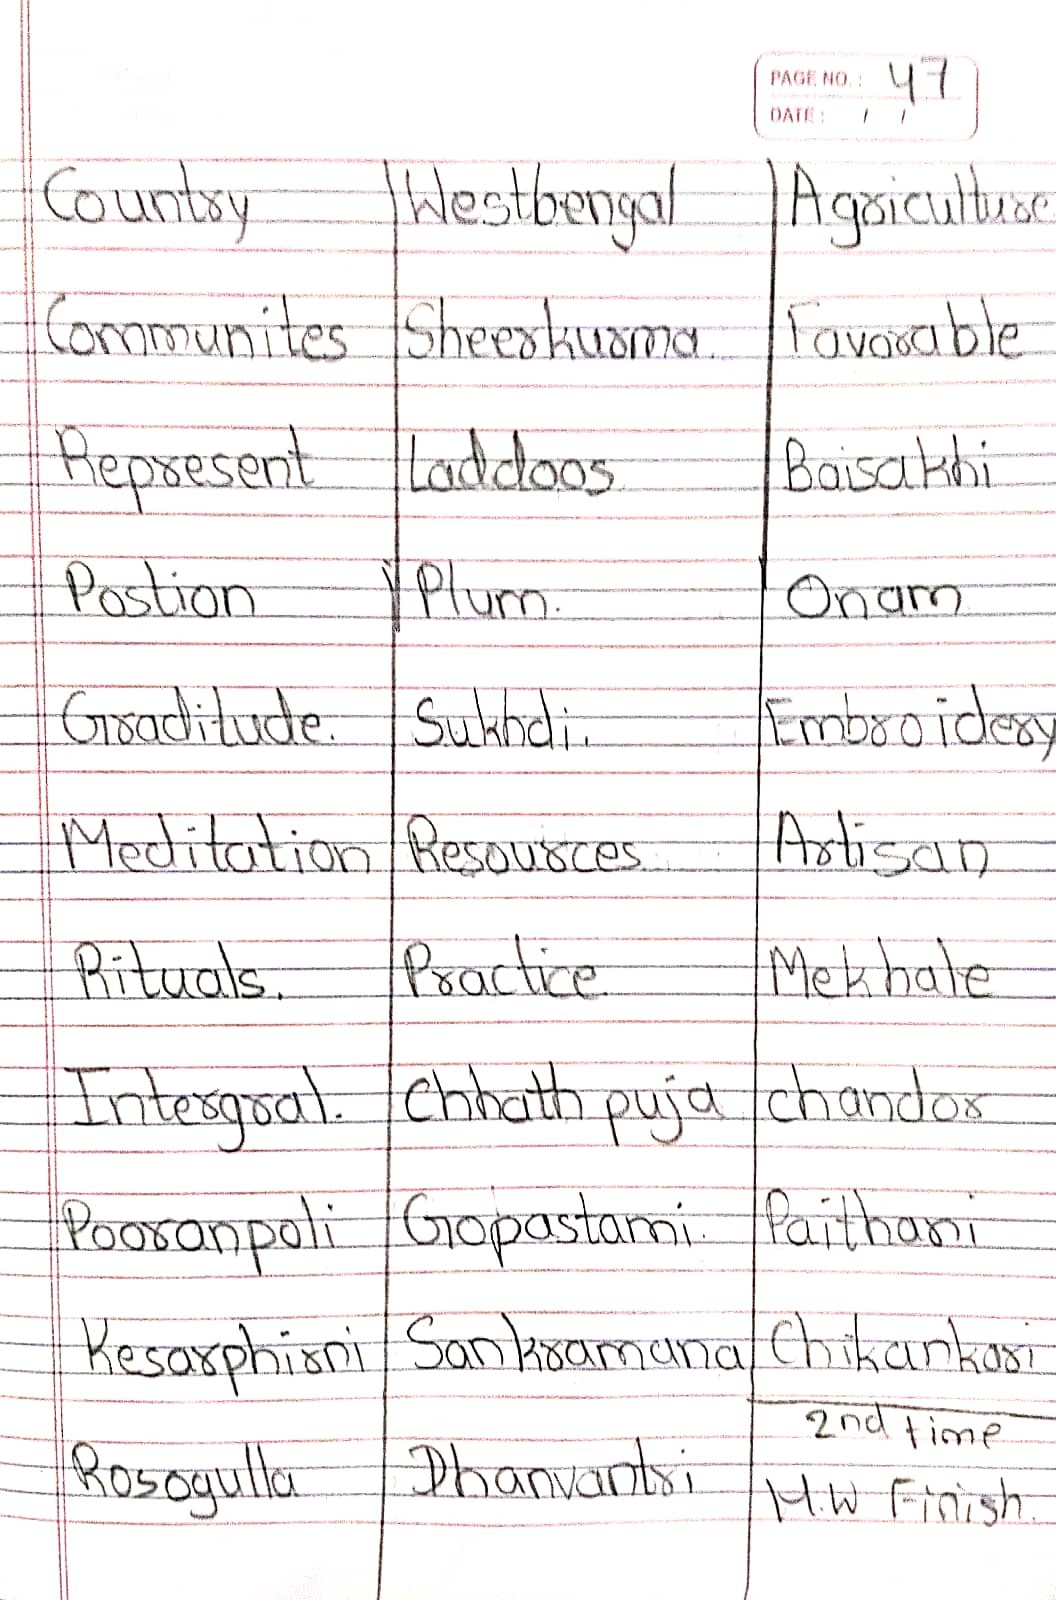 PAGE NO.: 47
DATE: / /
Country Westbengal Agriculture
Communites Sheerkurma. Favorable
Represent Laddoos Baisakhi
Postion Plum. Onam
Graditude. Sukhdi. Embroidery
Meditation Resources Artisan
Rituals. Practice Mekhale
Intergral. Chhath puja chandor
Pooranpoli Gopastami. Paithani
Kesarphirni Sankramana Chikankari
2nd time
Rosogulla Dhanvantri H.W Finish.